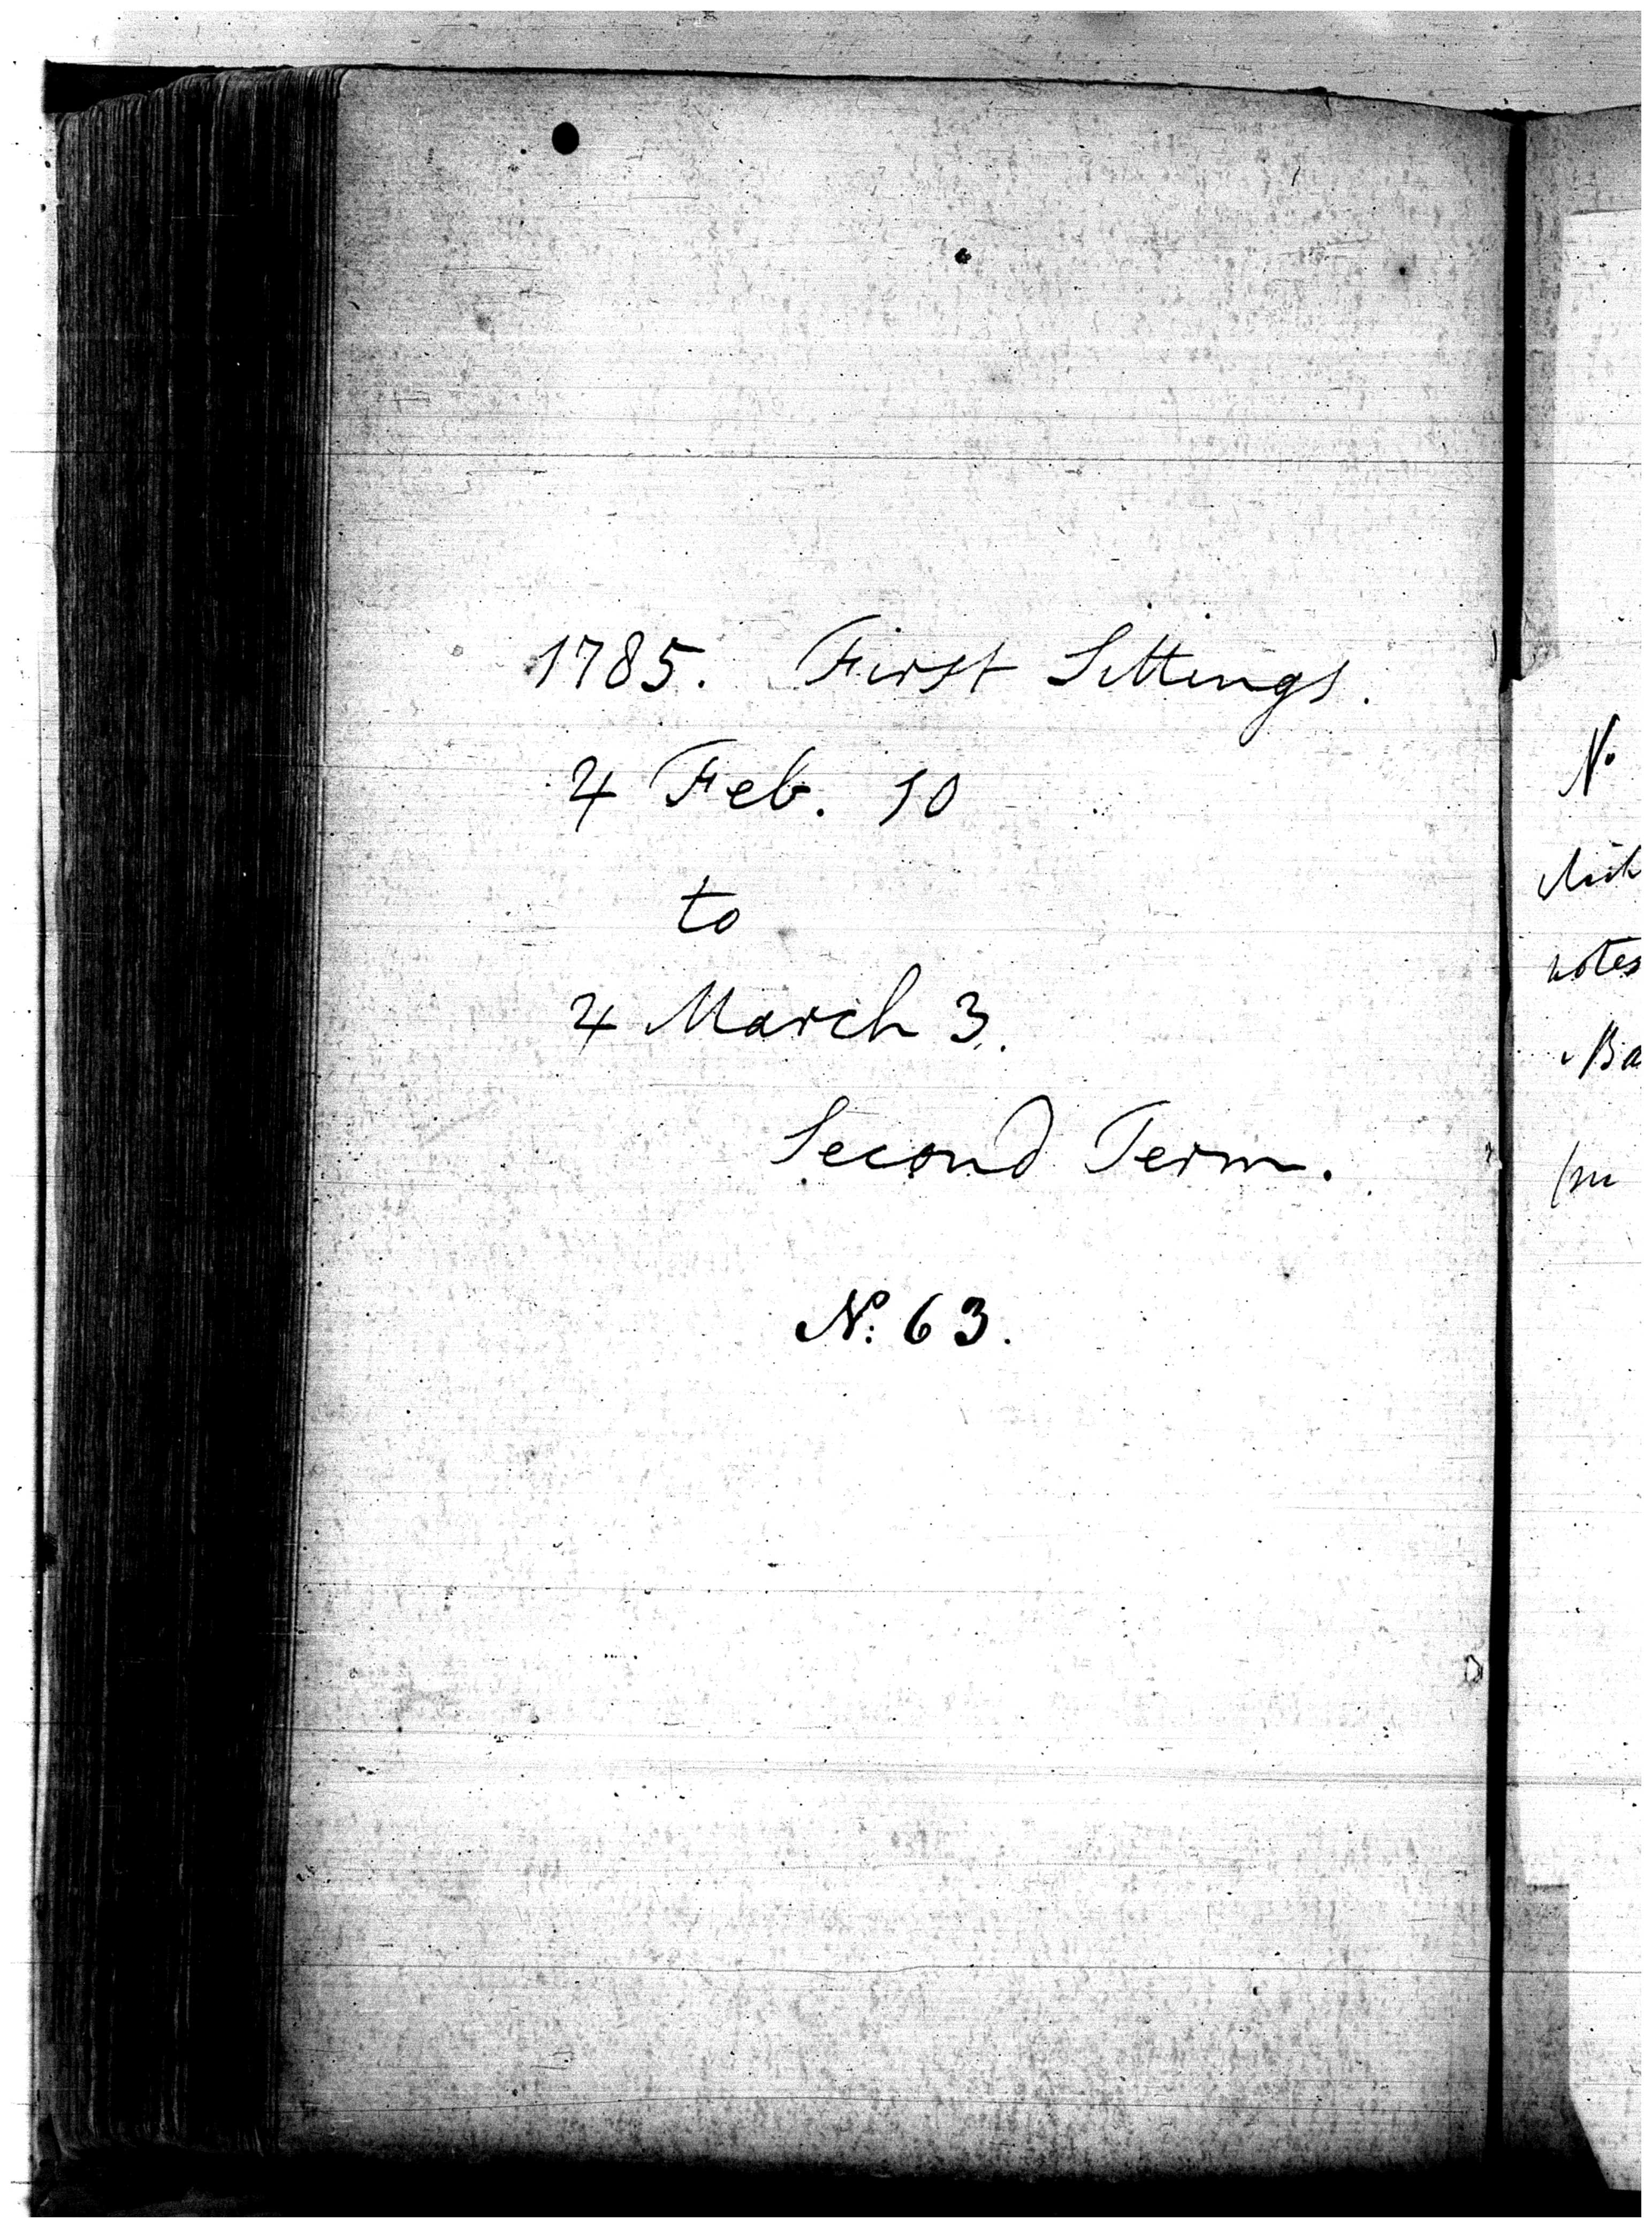 1785. First Sittings.
♃ Feb. 10
to
♃ March 3.
Second Term.
No. 63.
N.
notes
Ba